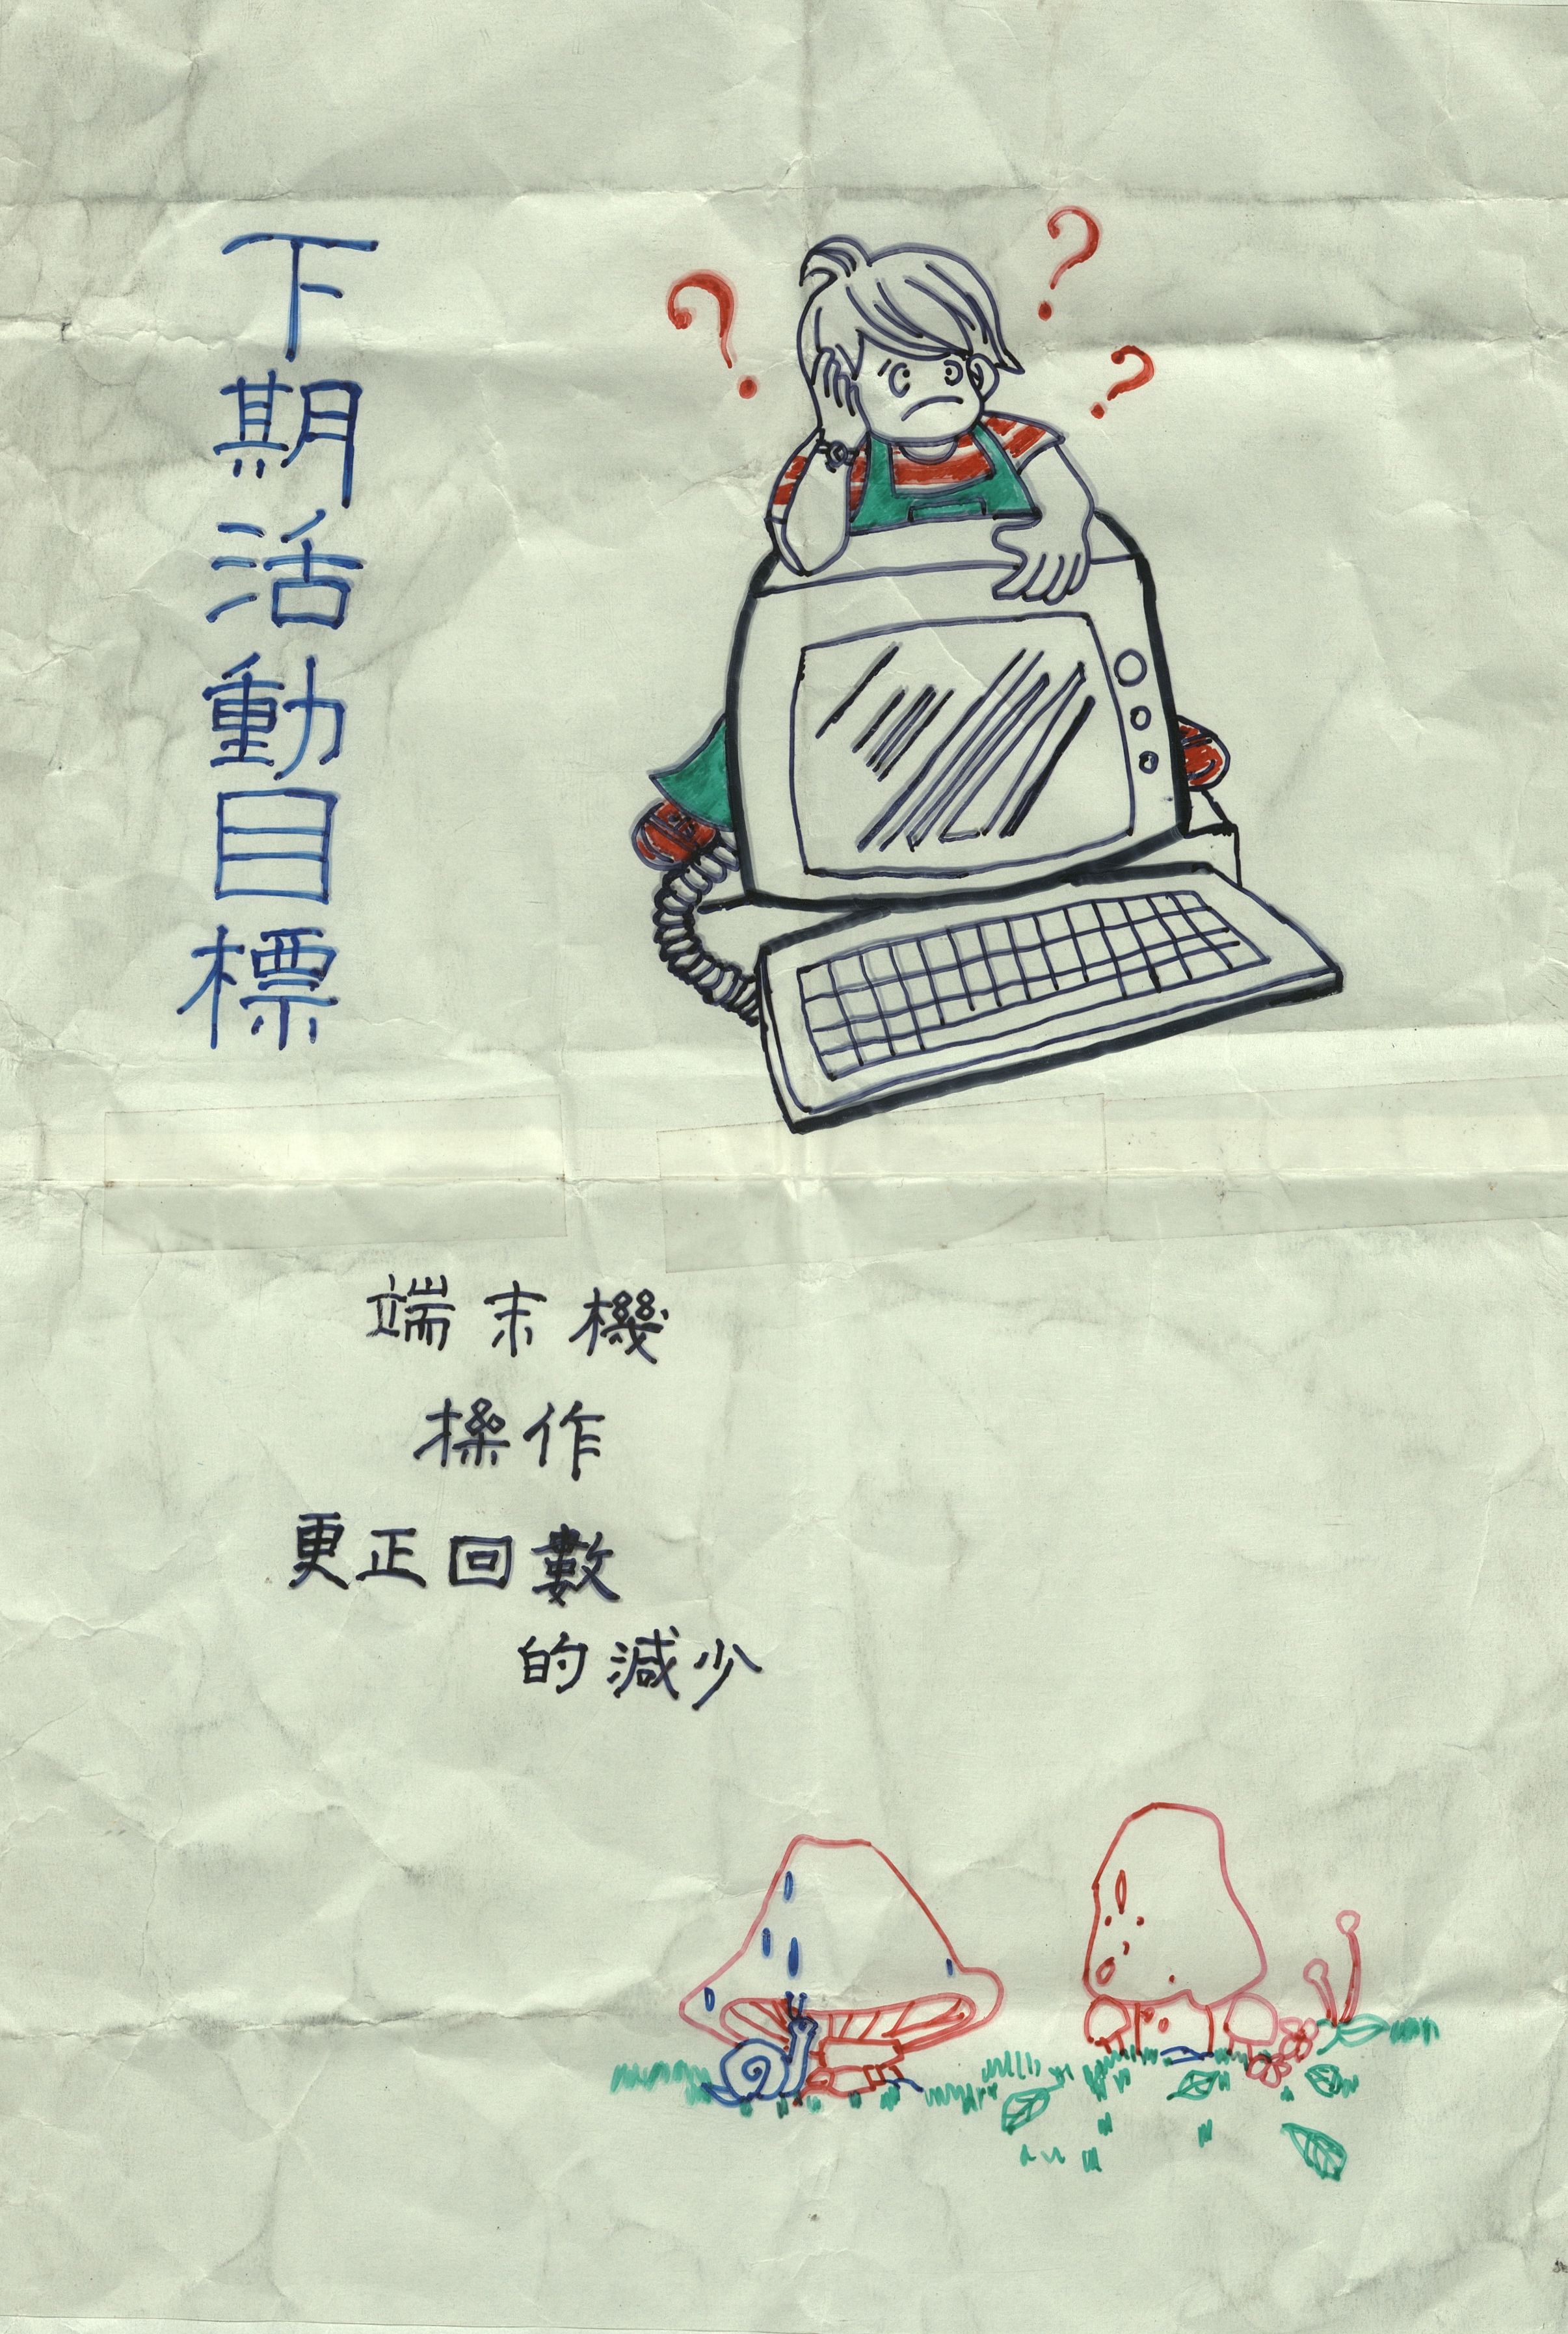 下期活動目標
端末機
操作
更正回數
的減少